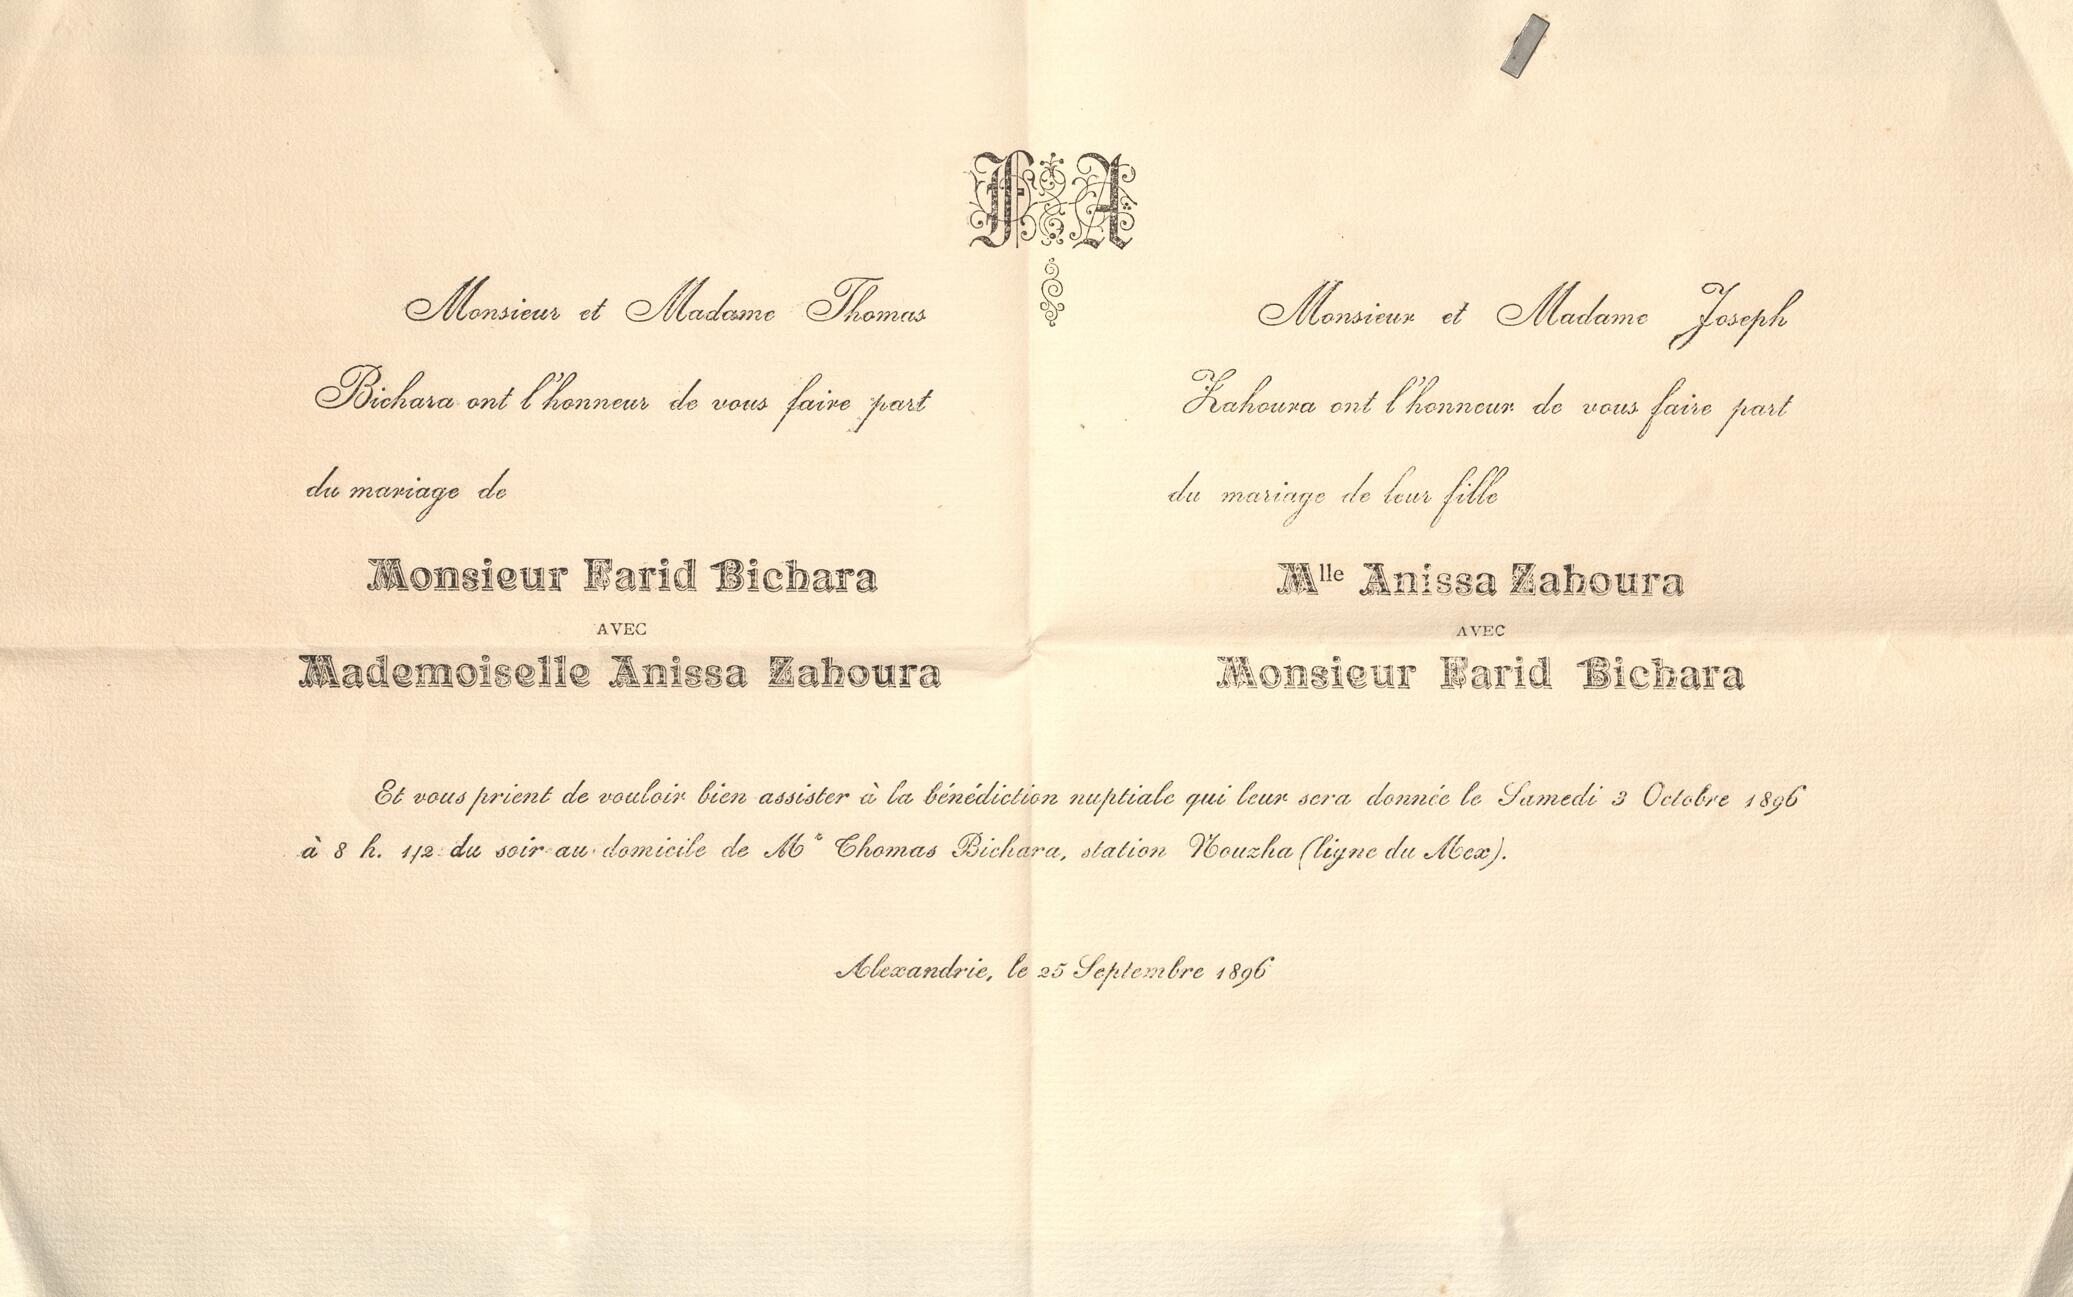 F A
Monsieur et Madame Thomas
Bichara ont l'honneur de vous faire part
du mariage de
Monsieur Farid Bichara
AVEC
Mademoiselle Anissa Zahoura
Monsieur et Madame Joseph
Zahoura ont l'honneur de vous faire part
du mariage de leur fille
Mlle Anissa Zahoura
AVEC
Monsieur Farid Bichara
Et vous prient de vouloir bien assister à la bénédiction nuptiale qui leur sera donnée le Samedi 3 Octobre 1896
à 8 h. 1/2 du soir au domicile de Mr Thomas Bichara, station Nouzha (ligne du Mex).
Alexandrie, le 25 Septembre 1896